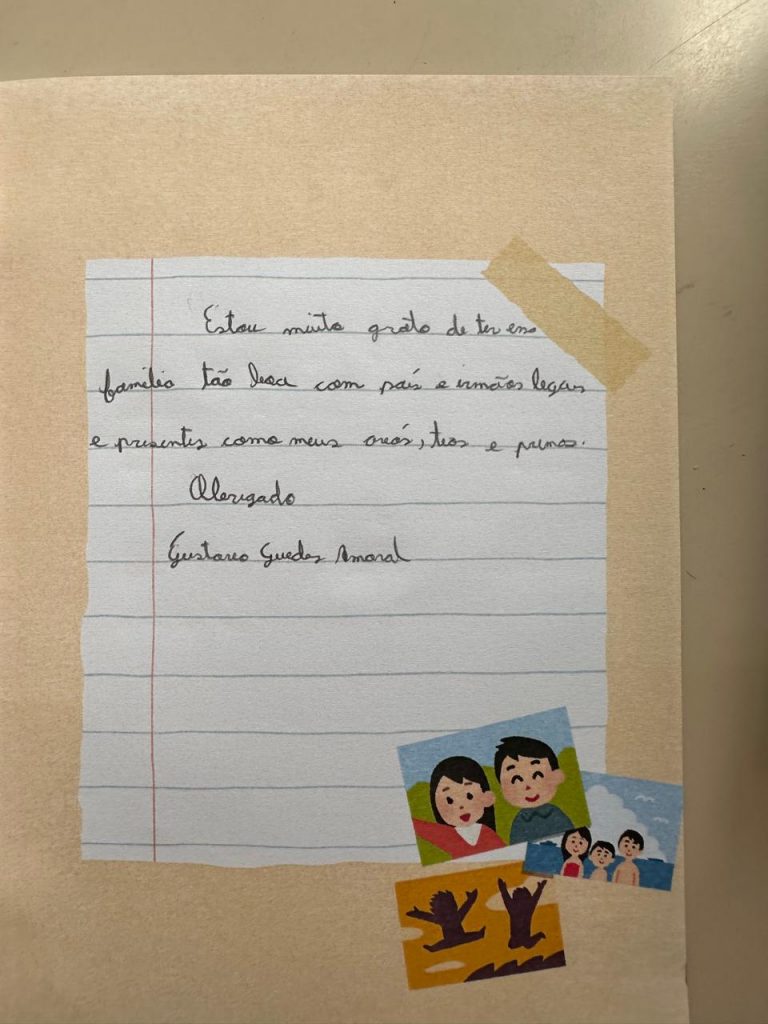 Estou muito grato de ter uma
família tão boa com pais e irmãos legais
e presentes como meus avós, tios e primos.
Obrigado
Gustavo Guedes Amaral